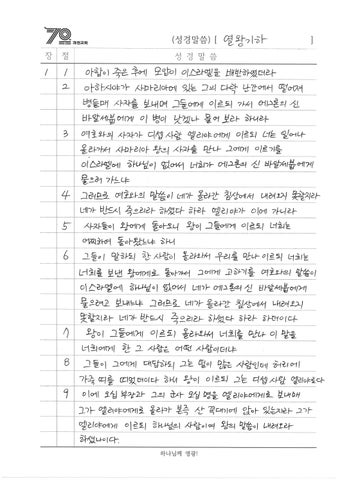 70 개원교회
(성경말씀) [ 열왕기하 ]
장 절 성 경 말 씀
1 1 아합이 죽은 후에 모압이 이스라엘을 배반하였더라
2 아하시야가 사마리아에 있는 그의 다락 난간에서 떨어져
병들매 사자를 보내며 그들에게 이르되 가서 에그론의 신
바알세붑에게 이 병이 낫겠나 물어 보라 하니라
3 여호와의 사자가 디셉 사람 엘리야에게 이르되 너는 일어나
올라가서 사마리아 왕의 사자를 만나 그에게 이르기를
이스라엘에 하나님이 없어서 너희가 에그론의 신 바알세붑에게
물으러 가느냐
4 그러므로 여호와의 말씀이 네가 올라간 침상에서 내려오지 못할지라
네가 반드시 죽으리라 하셨다 하라 엘리야가 이에 가니라
5 사자들이 왕에게 돌아오니 왕이 그들에게 이르되 너희는
어찌하여 돌아왔느냐 하니
6 그들이 말하되 한 사람이 올라와서 우리를 만나 이르되 너희는
너희를 보낸 왕에게로 돌아가서 그에게 고하기를 여호와의 말씀이
이스라엘에 하나님이 없어서 네가 에그론의 신 바알세붑에게
물으려고 보내느냐 그러므로 네가 올라간 침상에서 내려오지
못할지라 네가 반드시 죽으리라 하셨다 하라 하더이다
7 왕이 그들에게 이르되 올라와서 너희를 만나 이 말을
너희에게 한 그 사람은 어떤 사람이더냐
8 그들이 그에게 대답하되 그는 털이 많은 사람인데 허리에
가죽 띠를 띠었더이다 하니 왕이 이르되 그는 디셉 사람 엘리야로다
9 이에 오십 부장과 그의 군사 오십 명을 엘리야에게로 보내매
그가 엘리야에게로 올라가 본즉 산 꼭대기에 앉아 있는지라 그가
엘리야에게 이르되 하나님의 사람이여 왕의 말씀이 내려오라
하셨나이다.
하나님께 영광!